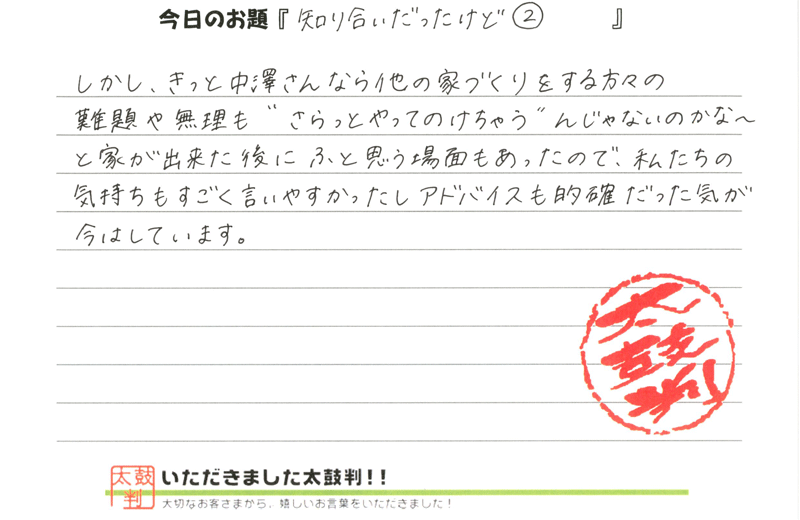 今日のお題『知り合いだったけど② 』
しかし、きっと中澤さんなら他の家づくりをする方々の
難題や無理も〝さらっとやってのけちゃう〟んじゃないのかな〜
と家が出来た後にふと思う場面もあったので、私たちの
気持ちもすごく言いやすかったしアドバイスも的確だった気が
今はしています。
太鼓判
太鼓判
いただきました太鼓判!!
大切なお客さまから、嬉しいお言葉をいただきました！